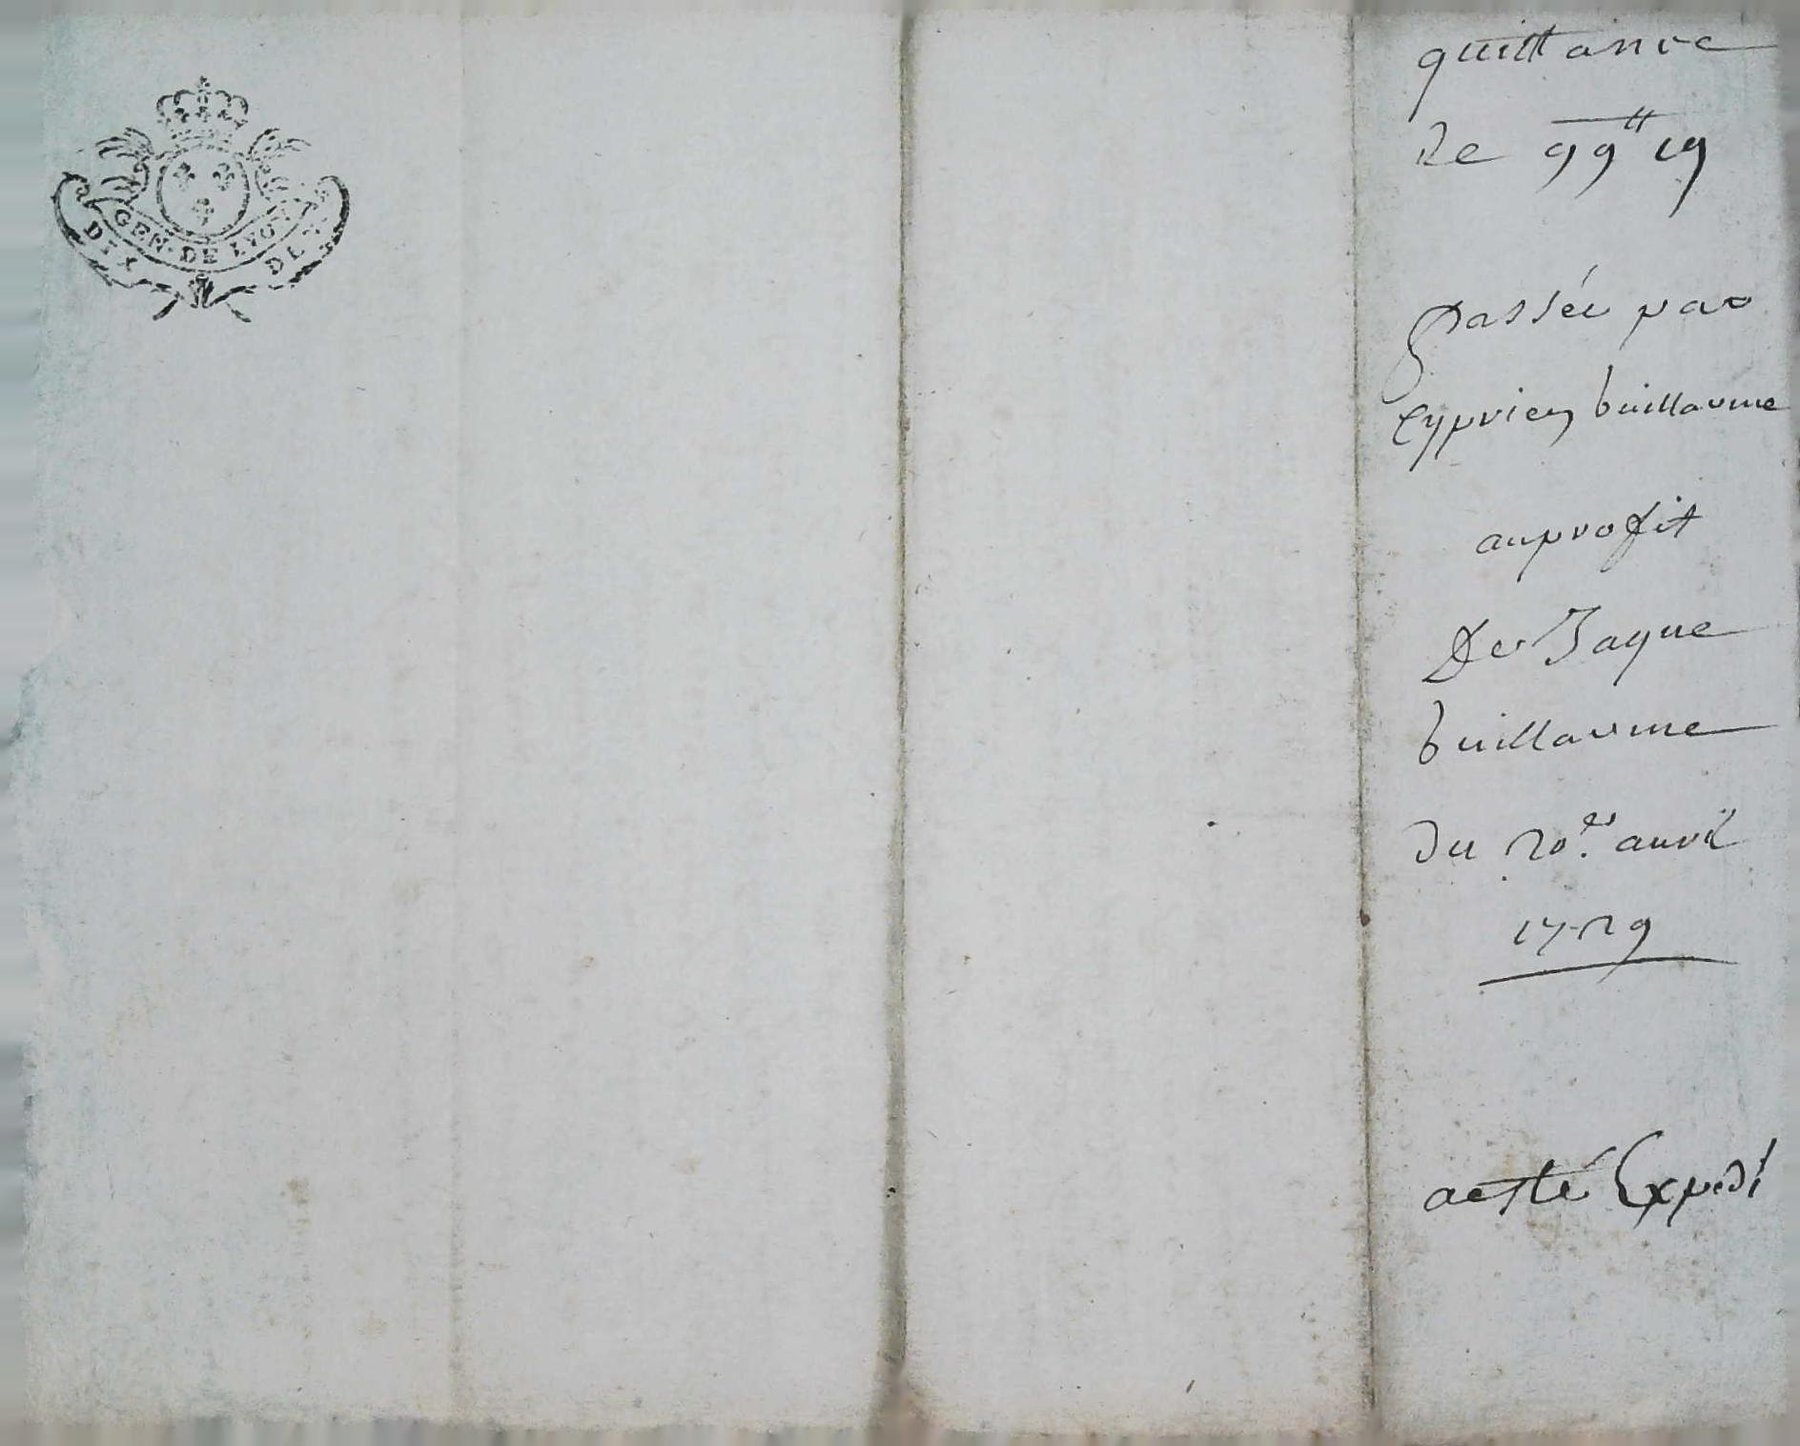 GEN. DE LYON
DIX DEN
quittance
de 99tt 19
passée par
Cyprien buillaume
au profit
De Jaque
buillaume
du 20e. auril
1729
a esté Expedi